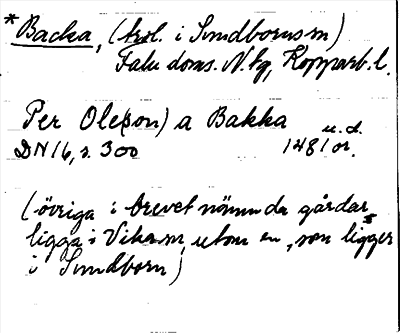 *Backa, (trol. i Sundbornsm)
Falu doms. N. kg, Kopparb. l.
Per Ole(son) a Bakka u.d.
DN 16, s. 300 1481 or.
(övriga i brevet nämnda gårdar
ligga i Vika sn, utom en, som ligger
i Sundborn)